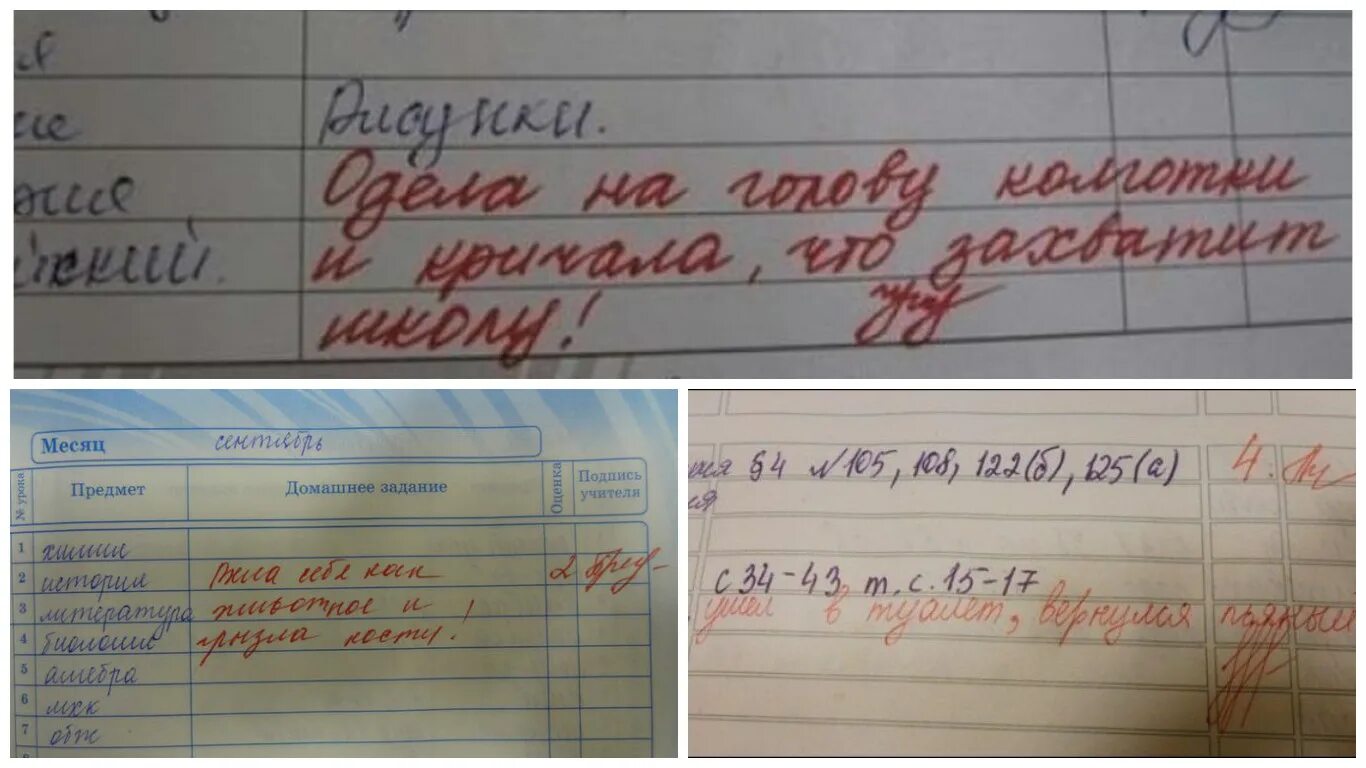 ия
ие Рисунки.
жия Одела на голову колготки
йский. и кричала, что захватит
школу!
Месяц сентябрь
№ урока Предмет Домашнее задание Оценка Подпись учителя
1 химия
2 история Вела себя как 2
3 литература животное и
4 биология грызла кости!
5 алгебра
6 мхк
7 обж
§4 №105, 108, 122(б), 125(а) 4.
ия
с 34-43, т. с. 15-17
ушел в туалет, вернулся пьяный